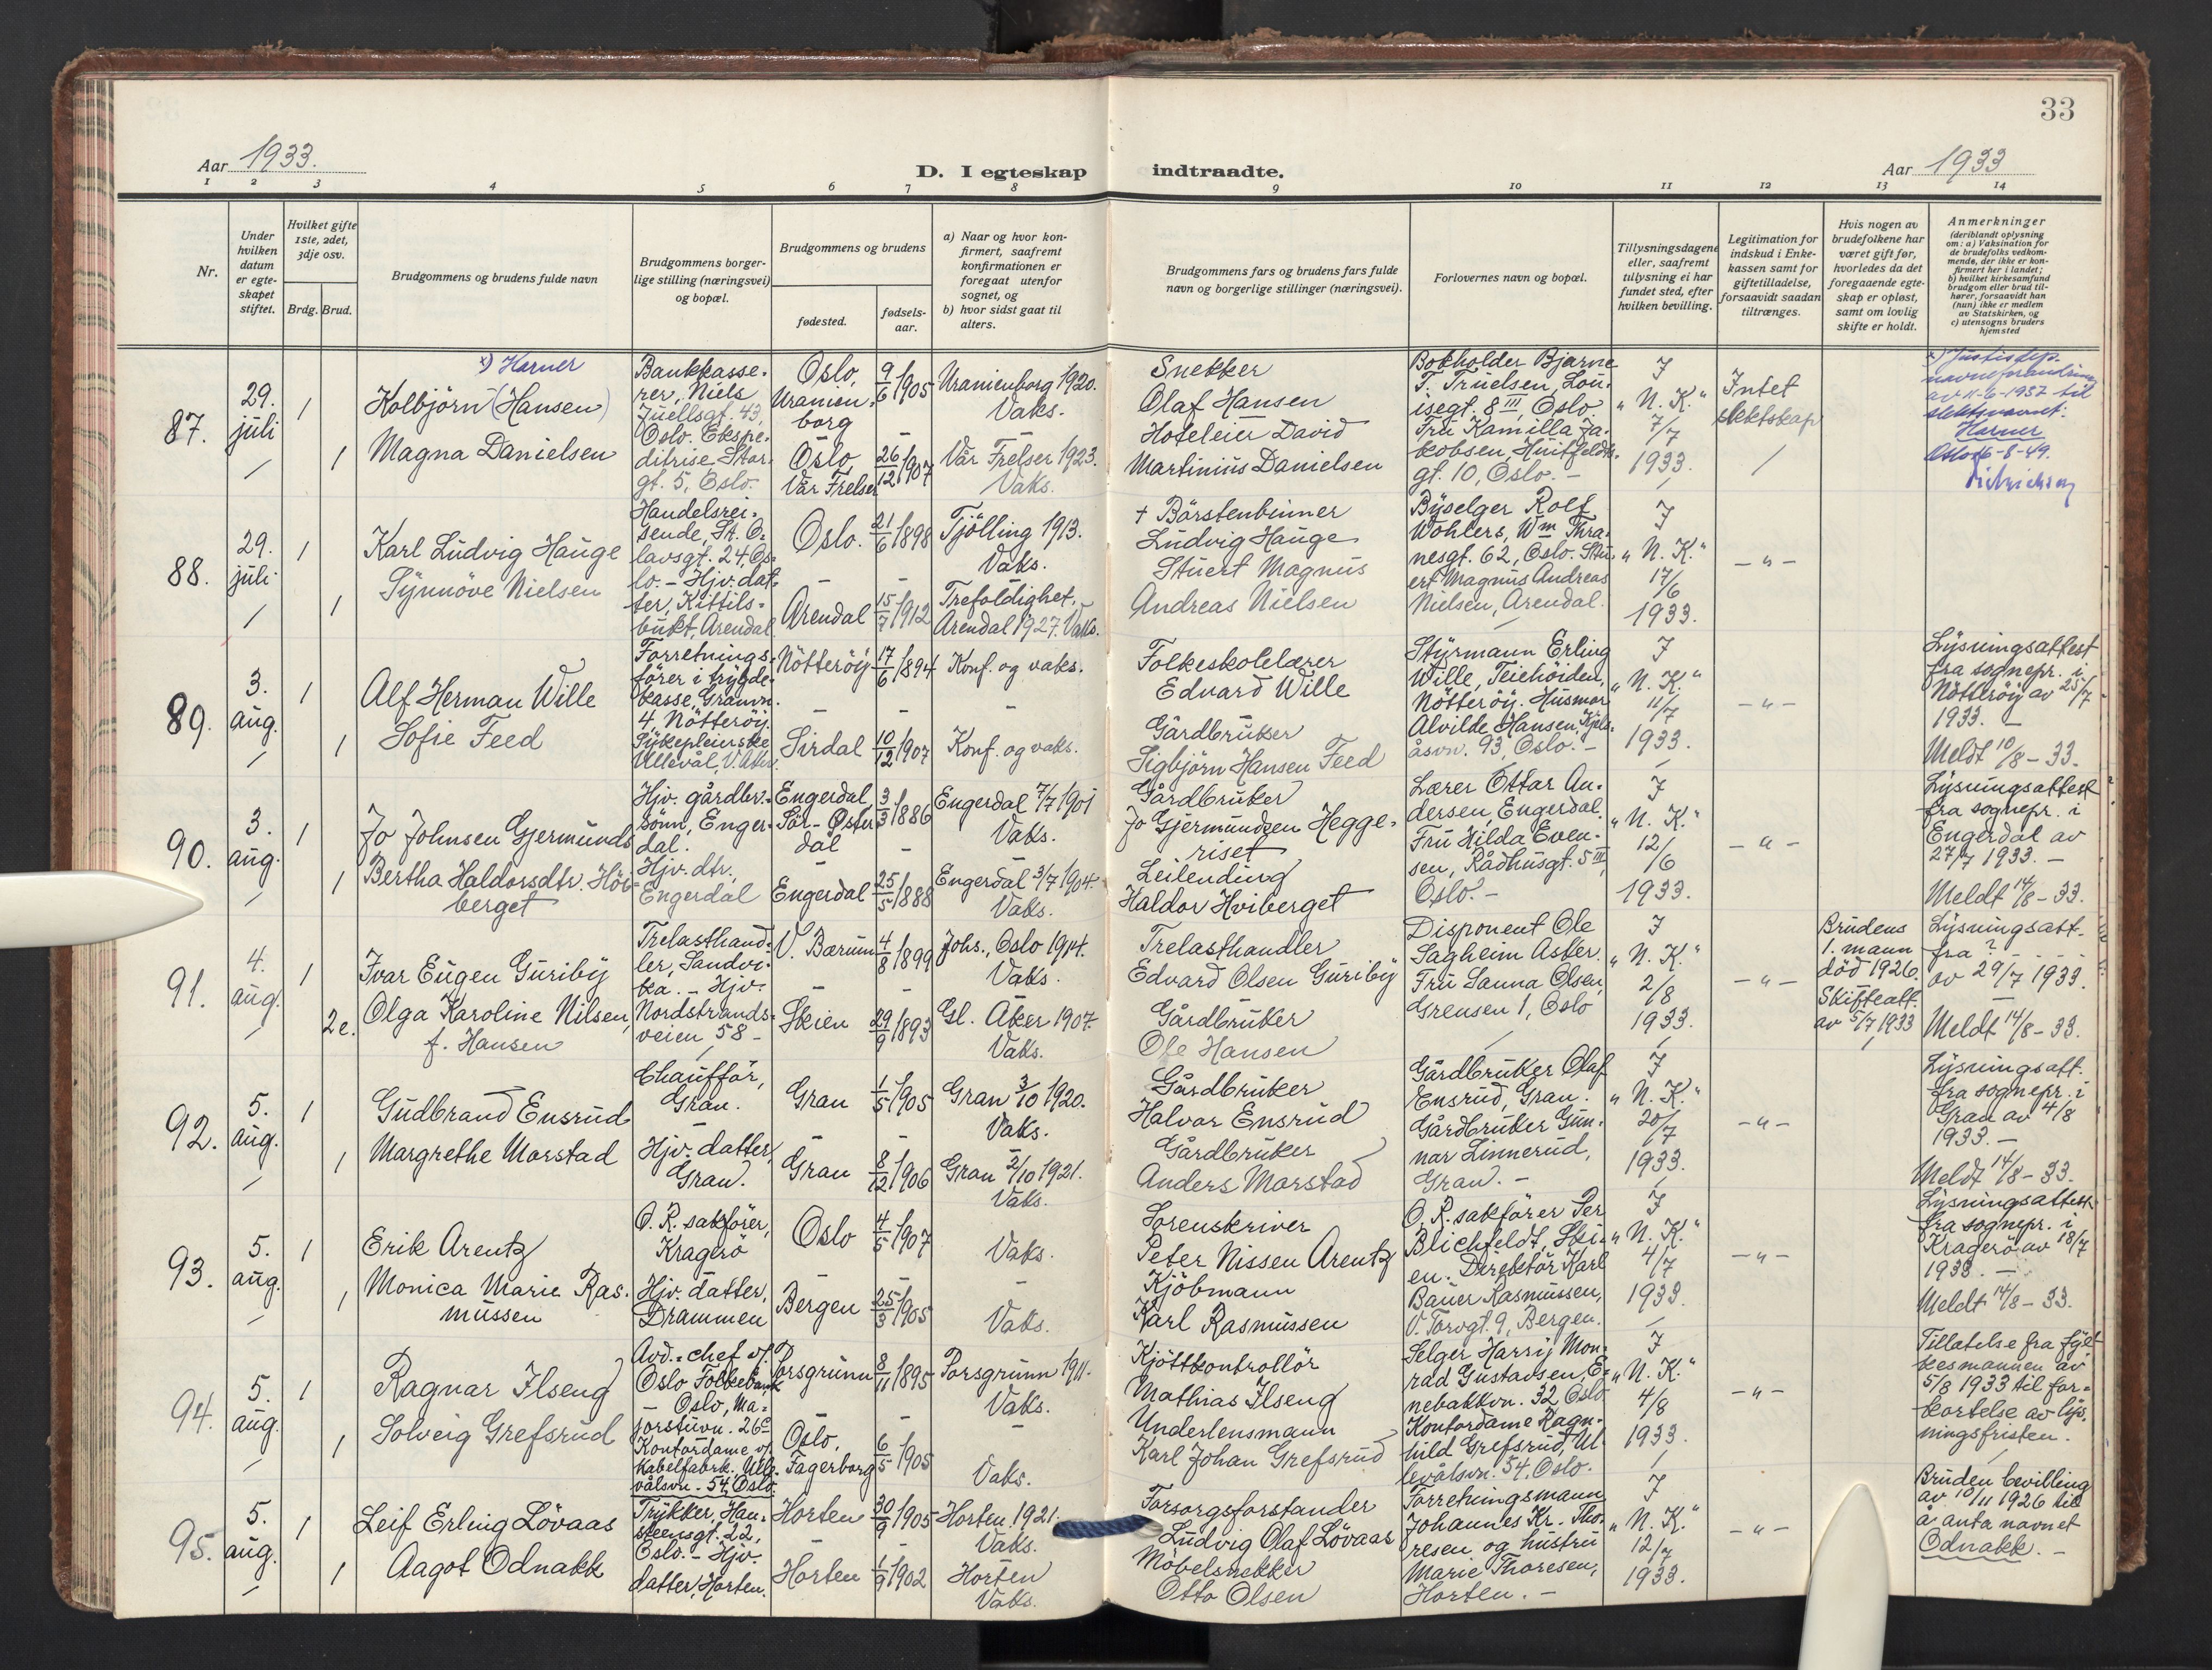 33
Aar 1933.
D. I egteskap indtraadte.
Aar 1933
1 2 3 4 5 6 7 8 9 10 11 12 13 14
Nr.
Under hvilken datum er egteskapet stiftet.
Hvilket gifte 1ste, 2det, 3dje osv.
Brdg. Brud.
Brudgommens og brudens fulde navn
Brudgommens borgerlige stilling (næringsvei) og bopæl.
Brudgommens og brudens
fødested.
fødselsaar.
a) Naar og hvor konfirmert, saafremt konfirmationen er foregaat utenfor sognet, og
b) hvor sidst gaat til alters.
Brudgommens fars og brudens fars fulde navn og borgerlige stillinger (næringsvei).
Forlovernes navn og bopæl.
Tillysningsdagene eller, saafremt tillysning ei har fundet sted, efter hvilken bevilling.
Legitimation for indskud i Enkekassen samt for giftetilladelse, forsaavidt saadan tiltrænges.
Hvis nogen av brudefolkene har været gift før, hvorledes da det foregaaende egteskap er opløst, samt om lovlig skifte er holdt.
Anmerkninger
(deriblandt oplysning om: a) Vaksination for de brudefolks vedkommende, der ikke er konfirmert her i landet;
b) hvilket kirkesamfund brudgom eller brud tilhører, forsaavidt han (hun) ikke er medlem av Statskirken, og
c) utensogns bruders hjemsted
87.
29. juli
1
x) Harner
Kolbjörn (Hansen)
1
Magna Danielsen
Bankkasserer, Niels Juellsgt. 43, Oslo. Ekspeditrise, Storgt. 5, Oslo.
Oslo, Uranienborg
9/6 1905
Uranienborg 1920. Vaks.
Oslo Vår Frelser
26/12 1907
Vår Frelser 1923. Vaks.
Snekker
Olaf Hansen
Hoteleier David
Martinius Danielsen
Bokholder Bjarne T. Truelsen, Louisegt. 8 III, Oslo.
Fru Kamilla Jakobsen, Huitfeldtsgt. 10, Oslo. -
I "N. K." 7/7 1933.
Intet slektskap
x) Justisdep.
av 11-6-1937 til
slektsnavnet:
Harner
88.
29. juli
1
Karl Ludvig Hauge
1
Synnöve Nielsen
Handelsreisende, St. Olavsgt. 24, Oslo. - Hjv. datter, Kittilsbukt, Arendal
Oslo.
21/6 1898
Tjölling 1913. Vaks.
Arendal
15/7 1912
Trefoldighet, Arendal 1927. Vaks.
+ Börstenbinner
Ludvig Hauge
Stuert Magnus
Andreas Nielsen
Byselger Rolf Wohlers, Wm Thranesgt. 62, Oslo. Stuert Magnus Andreas Nielsen, Arendal.
I "N. K." 17/6 1933.
- " -
89.
3. aug.
1
Alf Herman Wille
1
Sofie Feed
Forretningsförer i trygdekasse, Gramn. 4, Nötteröy. Sykepleierske Ullevål, V. Aker
Nötteröy
17/6 1894
Konf. og vaks.
Sirdal
10/12 1907
Konf. og vaks.
Folkeskolelærer
Edvard Wille
Gårdbruker
Sigbjörn Hansen Feed
Styrmann Erling Wille, Teiehöiden, Nötteröy. Husmor Alvilde Hansen, Kjelsåsvn. 93, Oslo. -
I "N. K." 11/7 1933.
- " -
Lysningsattest fra sognepr. i Nötteröy av 25/7 1933. -
Meldt 10/8 - 33.
90.
3. aug.
1
Jo Johnsen Gjermunds
1
Bertha Haldorsdtr. Höiberget
Hjv. gårdbr.sönn, Engerdal.
Hjv. dtr., Engerdal
Engerdal, Sör-Österdal
3/3 1886
Engerdal 7/7 1901 Vaks.
Engerdal
25/5 1888
Engerdal 3/7 1904. Vaks.
Gårdbruker
Jo Gjermundsen Heggeriset
Leilending
Haldor Hviberget
Lærer Ottar Andersen, Engerdal. Fru Hilda Evensen, Rådhusgt. 5 III, Oslo. -
I "N. K." 12/6 1933.
- " -
Lysningsattest fra sognepr. i Engerdal av 27/7 1933. -
Meldt 14/8 - 33.
91.
4. aug.
1
Ivar Eugen Guriby
2e.
Olga Karoline Nilsen, f. Hansen
Trelasthandler, Sandvika. - Hjv. Nordstrandsveien 58 -
V. Bærum
4/8 1899
Johs., Oslo 1914. Vaks.
Skien
29/9 1893
Gl. Aker 1907. Vaks.
Trelasthandler
Edvard Olsen Guriby
Gårdbruker
Ole Hansen
Disponent Ole Sagheim Asker. Fru Sanna Olsen, Grensen 1, Oslo
I "N. K." 2/8 1933.
- " -
Brudens 1. mann död 1926. Skifteatt. av 5/7 1933
Lysningsatt. fra ? . . . . av 29/7 1933.
Meldt 14/8 - 33.
92.
5. aug.
1
Gudbrand Ensrud
1
Margrethe Morstad
Chaufför, Gran.
Hjv. datter, Gran.
Gran
1/5 1905
Gran 3/10 1920. Vaks.
Gran
8/12 1906
Gran 2/10 1921. Vaks.
Gårdbruker
Halvor Ensrud
Gårdbruker
Anders Morstad
Gårdbruker Olaf Ensrud, Gran. Gårdbruker Gunnar Linnerud, Gran. -
I "N. K." 20/7 1933.
- " -
Lysningsatt. fra sognepr. i Gran av 4/8 1933. -
Meldt 14/8 - 33.
93.
5. aug.
1
Erik Arentz
1
Monica Marie Rasmussen
O. R. sakförer, Kragerö
Hjv. datter, Drammen
Oslo
4/5 1907
Vaks.
Bergen
25/3 1905
Vaks.
Sorenskriver
Peter Nissen Arentz
Kjöbmann
Karl Rasmussen
O. R. sakförer Per Blichfeldt, Skien. Direktör Karl Bauer Rasmussen, V. Torvgt. 9, Bergen.
I "N. K." 4/7 1933.
- " -
Lysningsattest fra sognepr. i Kragerö av 18/7 1933. -
Meldt 14/8 - 33.
94.
5. aug.
1
Ragnar Ilseng
1
Solveig Grefsrud
Avd.-chef v/ Oslo Folkebank - Oslo, Majorstuvn. 26c Kontordame v/ Kabelfabrk. Ullevålsvn. 54, Oslo.
Porsgrunn
8/11 1895
Porsgrunn 1911. Vaks.
Oslo, Fagerborg
6/5 1905
Vaks.
Kjöttkontrollör
Mathias Ilseng
Underlensmann
Karl Johan Grefsrud
Selger Harry Monrad Gustavsen, Enebakkvn. 32, Oslo. Kontordame Ragnhild Grefsrud, Ullevålsvn. 54, Oslo.
I "N. K." 4/8 1933.
- " -
Tillatelse fra fylkesmannen av 5/8 1933 til forkortelse av lysningsfristen.
95.
5. aug.
1
Leif Erling Lövaas
1
Aagot Odnakk
Trykker, Hansteensgt. 22, Oslo. - Hjv. datter, Horten.
Horten
30/9 1905
Horten 1921. Vaks.
Horten
1/9 1902
Horten Vaks.
Forsorgsforstander
Ludvig Olaf Lövaas
Möbelsnekker
Otto Olsen
Forretningsmann Johannes Kr. Thoresen og hustru Marie Thoresen, Horten. -
I "N. K." 12/7 1933.
- " -
Bruden bevilling av 10/11 1926 til å anta navnet Odnakk. -